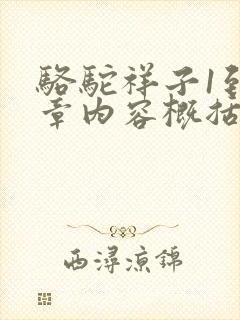 骆驼祥子1到
章内容概括
西潯凉錦